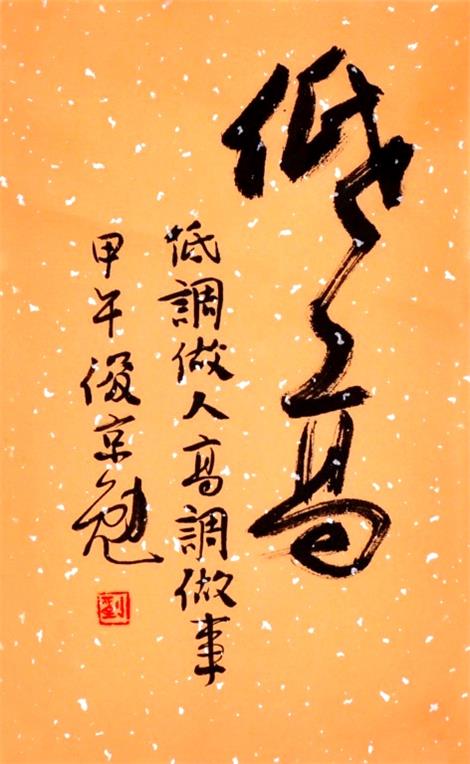 低高
低調做人高調做事
甲午俊京勉
劉